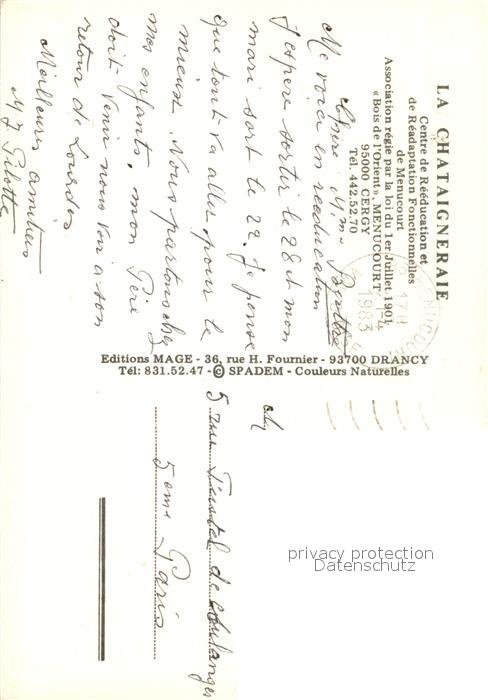 LA CHATAIGNERAIE
Centre de Rééducation et
de Réadaptation Fonctionnelles
de Menucourt
Association régie par la loi du 1er Juillet 1901
« Bois de l'Orient », MENUCOURT
95000 CERGY
Tél. 442.52.70
17H
-4
1983
Chère Mme
Me voici en reeducation
J espere sortir le 28 et mon
mari sort le 29. Je pense
que tout va aller pour le
mieux. Nous partons chez
mes enfants, mon Père
doit venir nous voir a son
retour de Lourdes
Meilleures amitiés
M J
Editions MAGE - 36, rue H. Fournier - 93700 DRANCY
Tél: 831.52.47 - © SPADEM - Couleurs Naturelles
5 rue Fustel de Coulanges
5eme Paris
privacy protection
Datenschutz